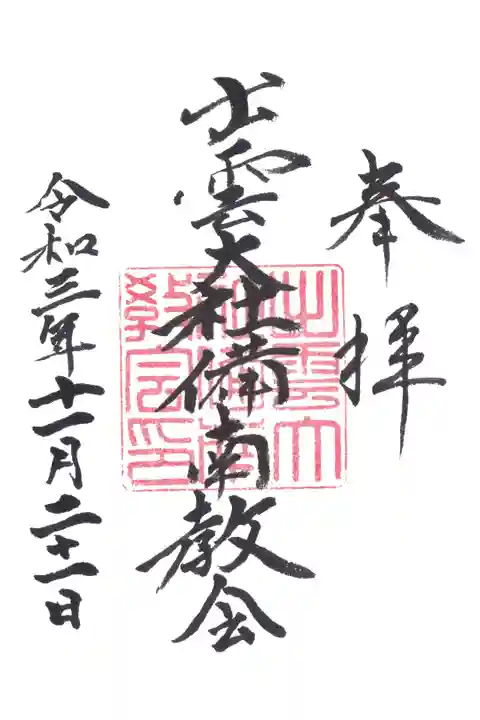 奉拝
出雲大社備南教会
令和三年十一月二十一日
出雲大
社備南
教会印